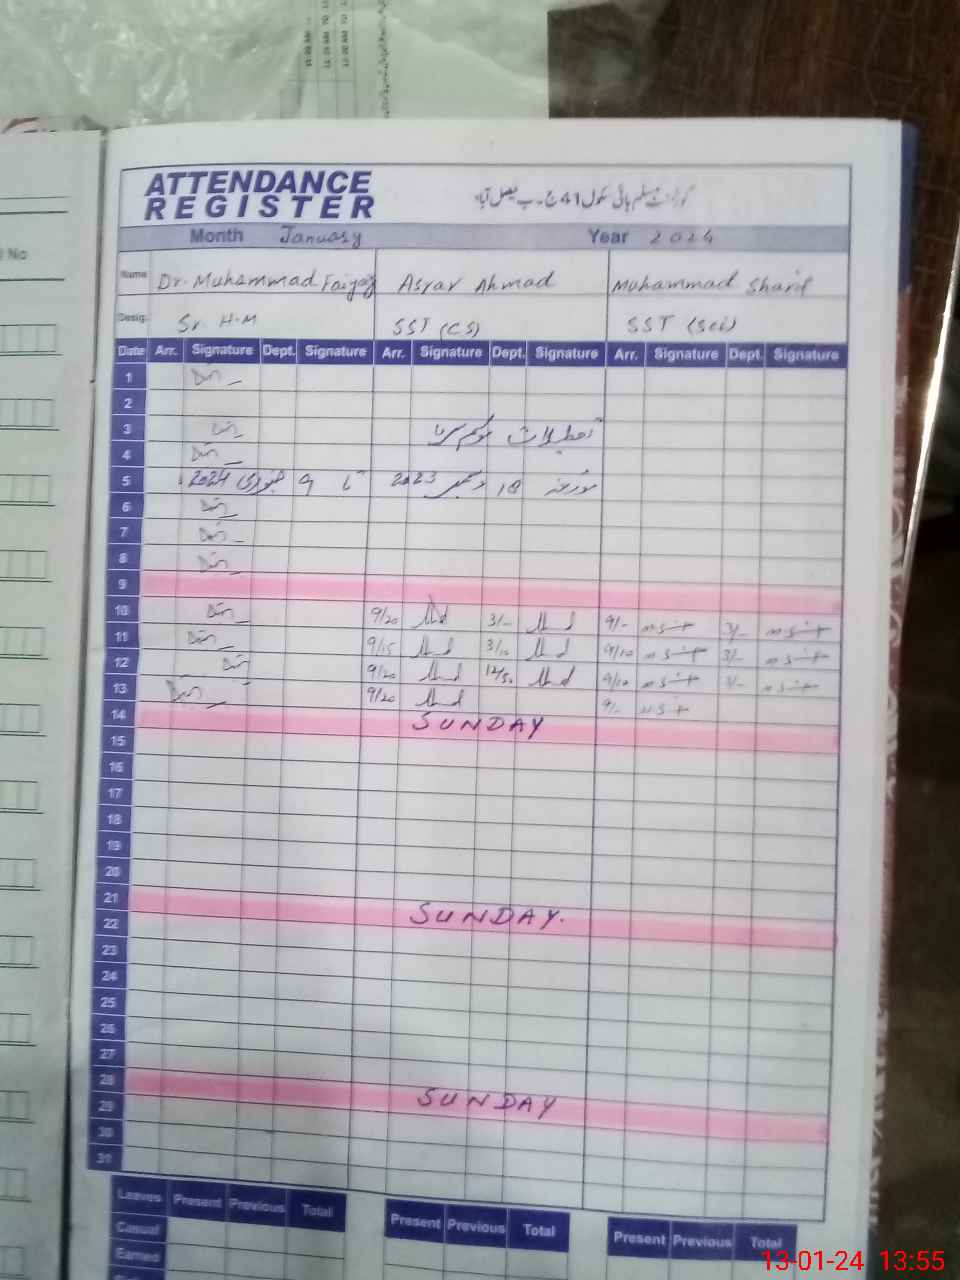 ATTENDANCE REGISTER
گورنمنٹ مسلم ہائی سکول 41 ج۔ب فیصل آباد
Month January Year 2024
Name Dr. Muhammad Faiyaz Asrar Ahmad Muhammad Sharif
Desig. Sr. H.M SST (CS) SST (Sci)
Date Arr. Signature Dept. Signature Arr. Signature Dept. Signature Arr. Signature Dept. Signature
1
2
3 تعطیلات موسم سرما
4
5 مورخہ 18 دسمبر 2023 تا 9 جنوری 2024
6
7
8
9
10 9/20 3/- 9/- 3/-
11 9/15 3/10 9/10 3/-
12 9/20 12/30 9/10
13 9/20 9/-
14 SUNDAY
15
16
17
18
19
20
21 SUNDAY.
22
23
24
25
26
27
28 SUNDAY
29
30
31
Leaves Present Previous Total Present Previous Total Present Previous Total
Casual
Earned
13-01-24 13:55